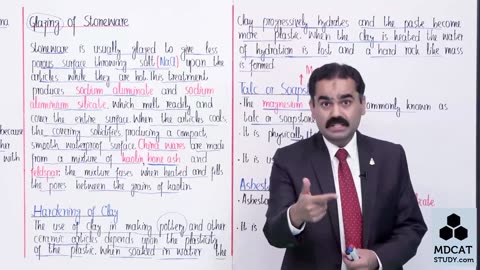 Glazing of Stoneware
Stoneware is usually glazed to give less
porous surface throwing salt (NaCl) upon the
articles while they are hot. This treatment
produces sodium aluminate and sodium
aluminium silicate. Which melt readily and
cover the entire surface. When the articles cools,
the covering solidifies producing a compact,
smooth waterproof surface. China wares are made
from a mixture of kaolin, bone ash and
feldspar; the mixture fuses when heated and fills
the pores between the grains of kaolin.
Hardening of Clay
The use of clay in making pottery and other
ceramic articles depends upon the plasticity
of the plastic. When soaked in water the
because
her
with
Clay progressively hydrates and the paste become
more plastic. When the clay is heated the water
of hydration is lost and a hard rock like mass
is formed.
Talc or Soapst
The magnesium commonly known as
talc or soapston
It is physically
It is
Asbest
Asbestos
It is
MDCAT
STUDY.com